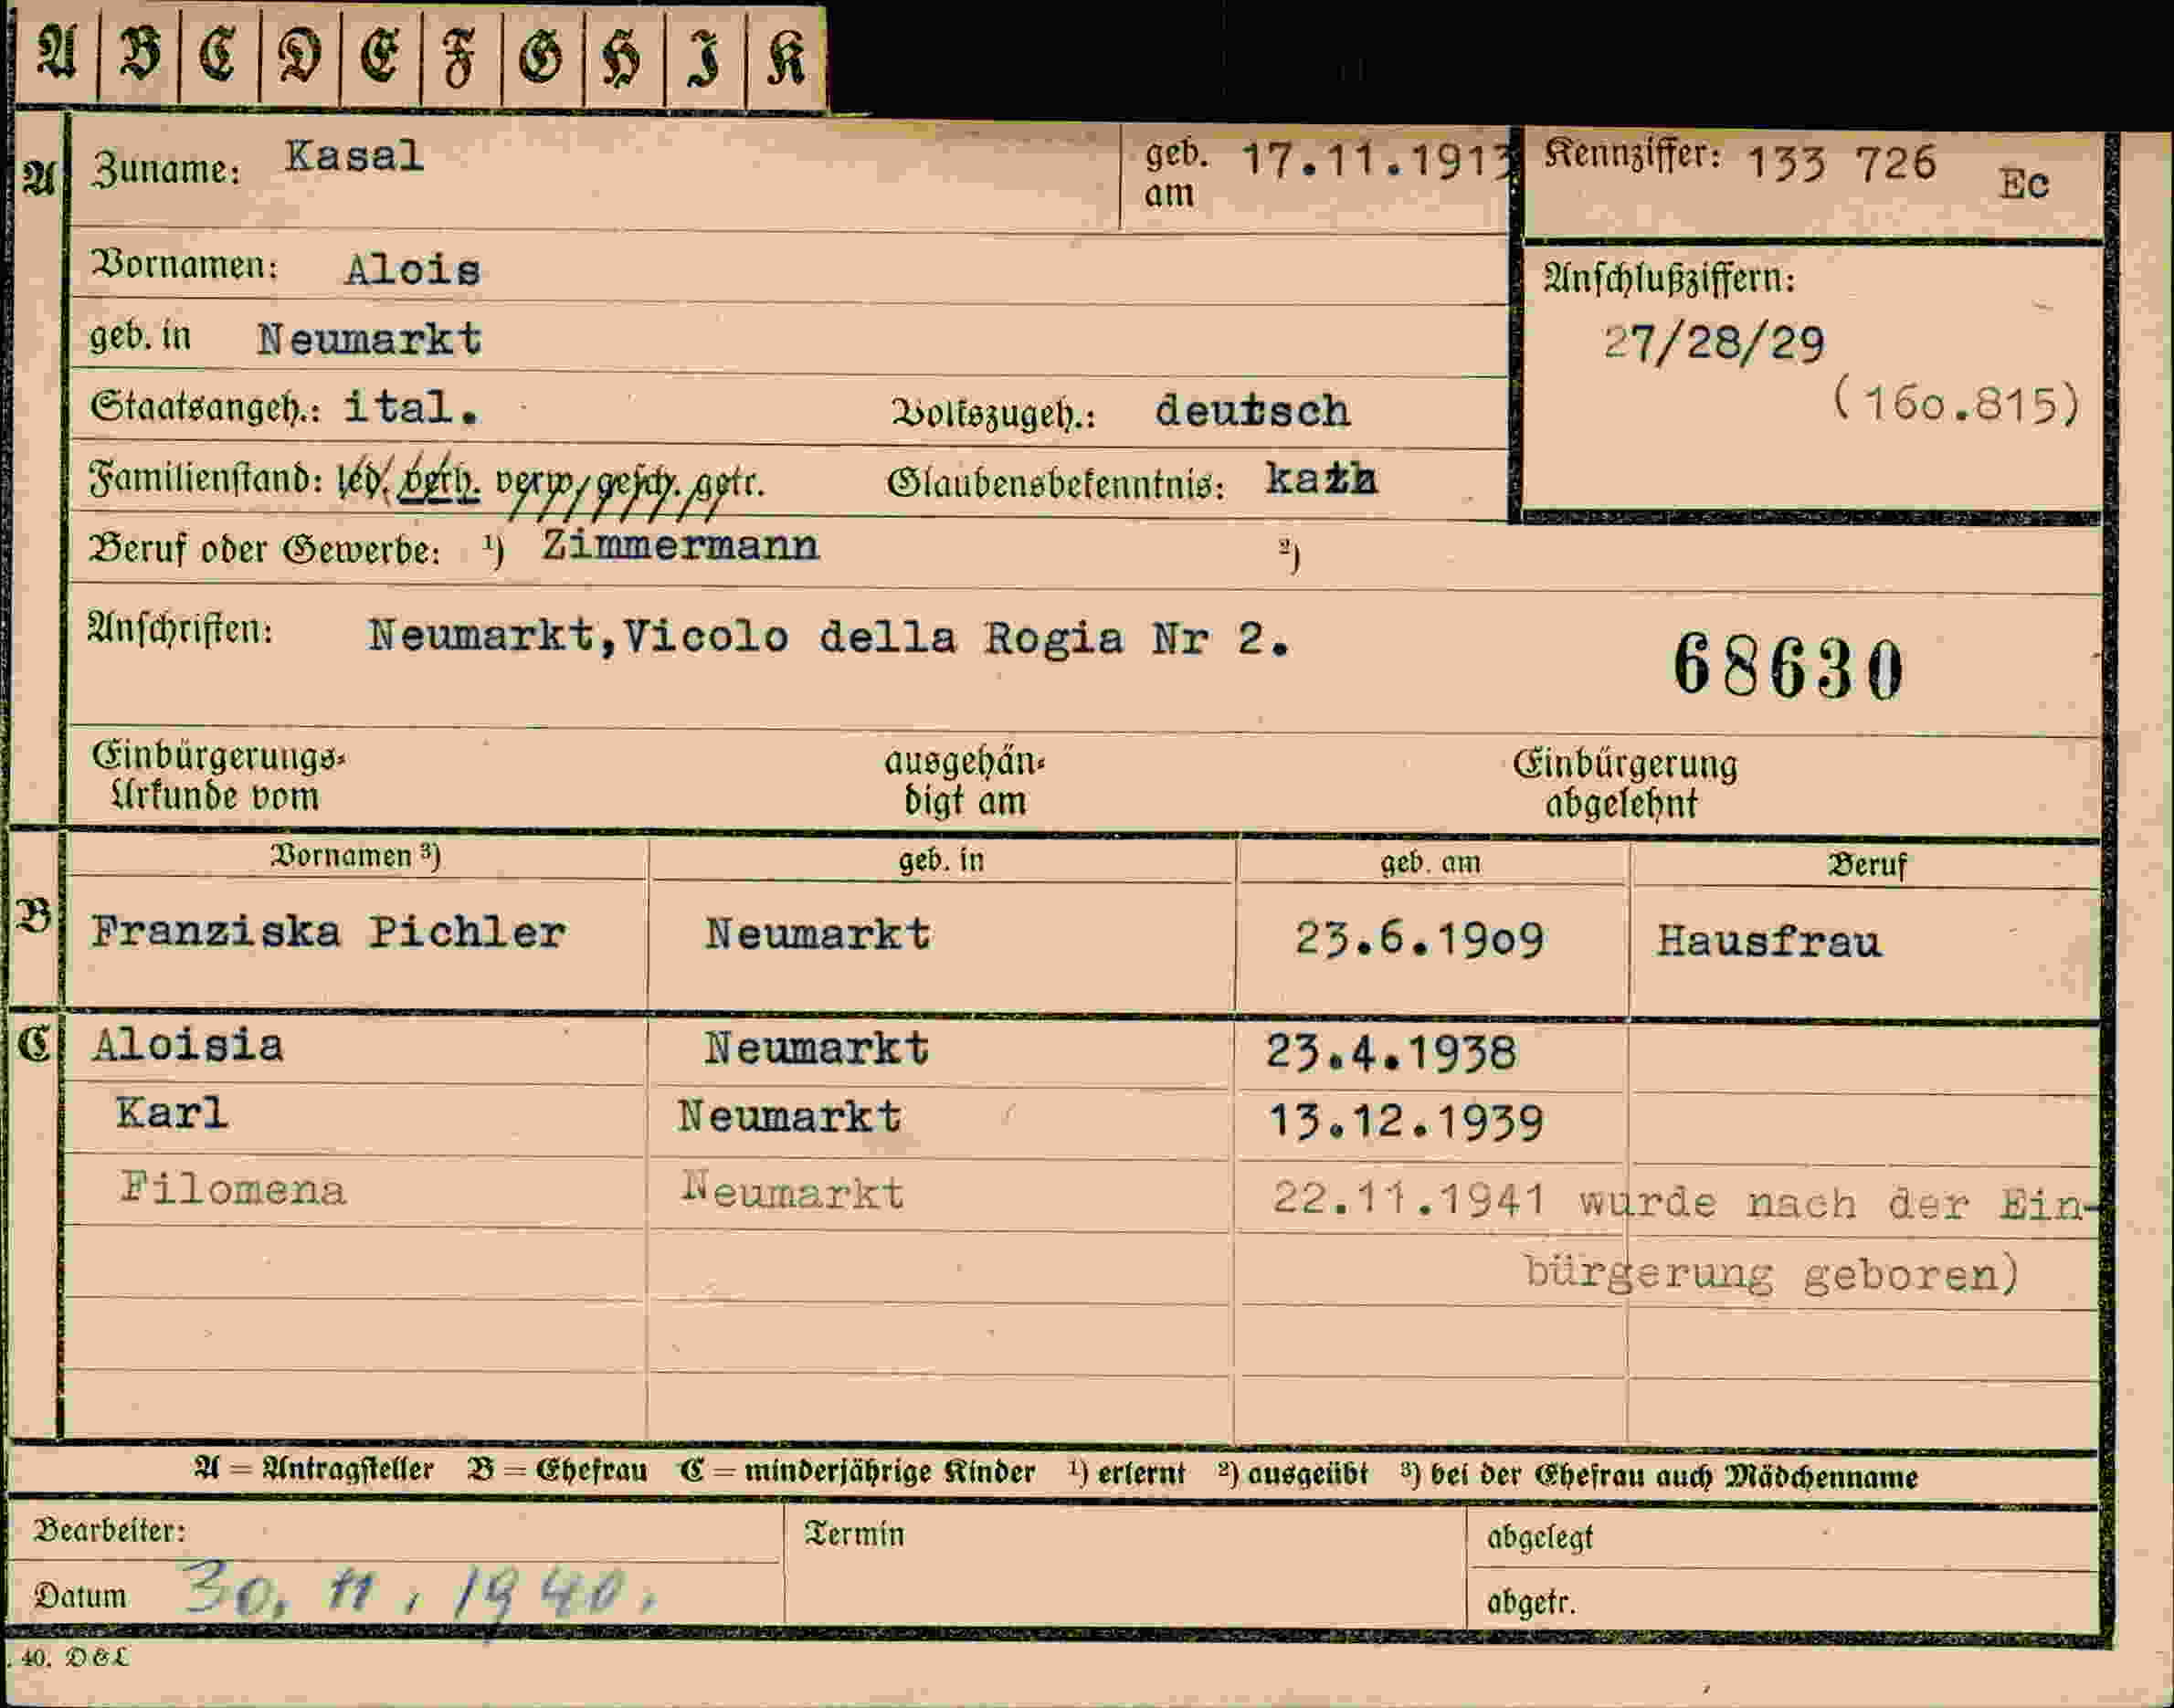 A B C D E F G H I K
A Zuname: Kasal geb. am 17.11.1913 Kennziffer: 133 726 Ec
Vornamen: Alois
Anschlußziffern:
geb. in Neumarkt
27/28/29
Staatsangeh.: ital. Volkszugeh.: deutsch
(16o.815)
Familienstand: led. verh. verw. gesch. getr. Glaubensbekenntnis: kath
Beruf oder Gewerbe: ¹) Zimmermann ²)
Anschriften: Neumarkt,Vicolo della Rogia Nr 2.
68630
Einbürgerungs- ausgehän- Einbürgerung
Urkunde vom digt am abgelehnt
Vornamen ³) geb. in geb. am Beruf
B Franziska Pichler Neumarkt 23.6.19o9 Hausfrau
C Aloisia Neumarkt 23.4.1938
Karl Neumarkt 13.12.1939
Filomena Neumarkt 22.11.1941 wurde nach der Ein-
bürgerung geboren)
A = Antragsteller B = Ehefrau C = minderjährige Kinder ¹) erlernt ²) ausgeübt ³) bei der Ehefrau auch Mädchenname
Bearbeiter: Termin abgelegt
Datum 30. 11. 1940. abgetr.
. 40. D & L